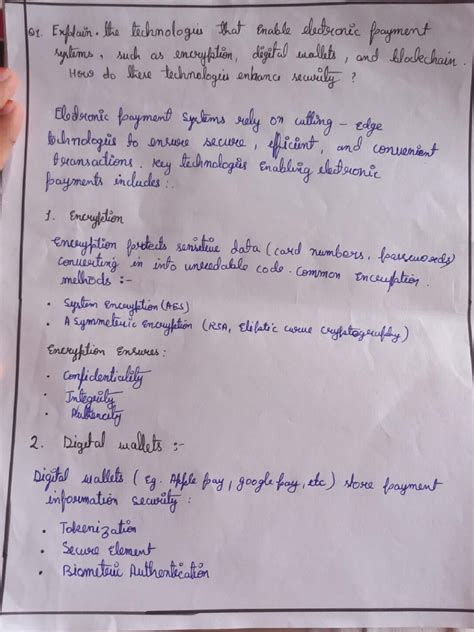 Q1. Explain the technologies that enable electronic payment
systems, such as encryption, digital wallets, and blockchain.
How do these technologies enhance security ?
Electronic payment systems rely on cutting - edge
technologies to ensure secure, efficient, and convenient
transactions. Key technologies Enabling electronic
payments includes :.
1. Encryption
Encryption protects sensitive data (card numbers, passwords)
converting in into unreadable code. Common Encryption
methods :-
• System Encryption (AES)
• Asymmeteric Encryption (RSA, Eliptic curve cryptography)
Encryption Ensures :
• Confidentiality
• Integrity
• Authencity
2. Digital wallets :-
Digital wallets ( Eg. Apple pay, google pay, etc) store payment
information security :
• Tokenization
• Secure Element
• Biometric Authentication